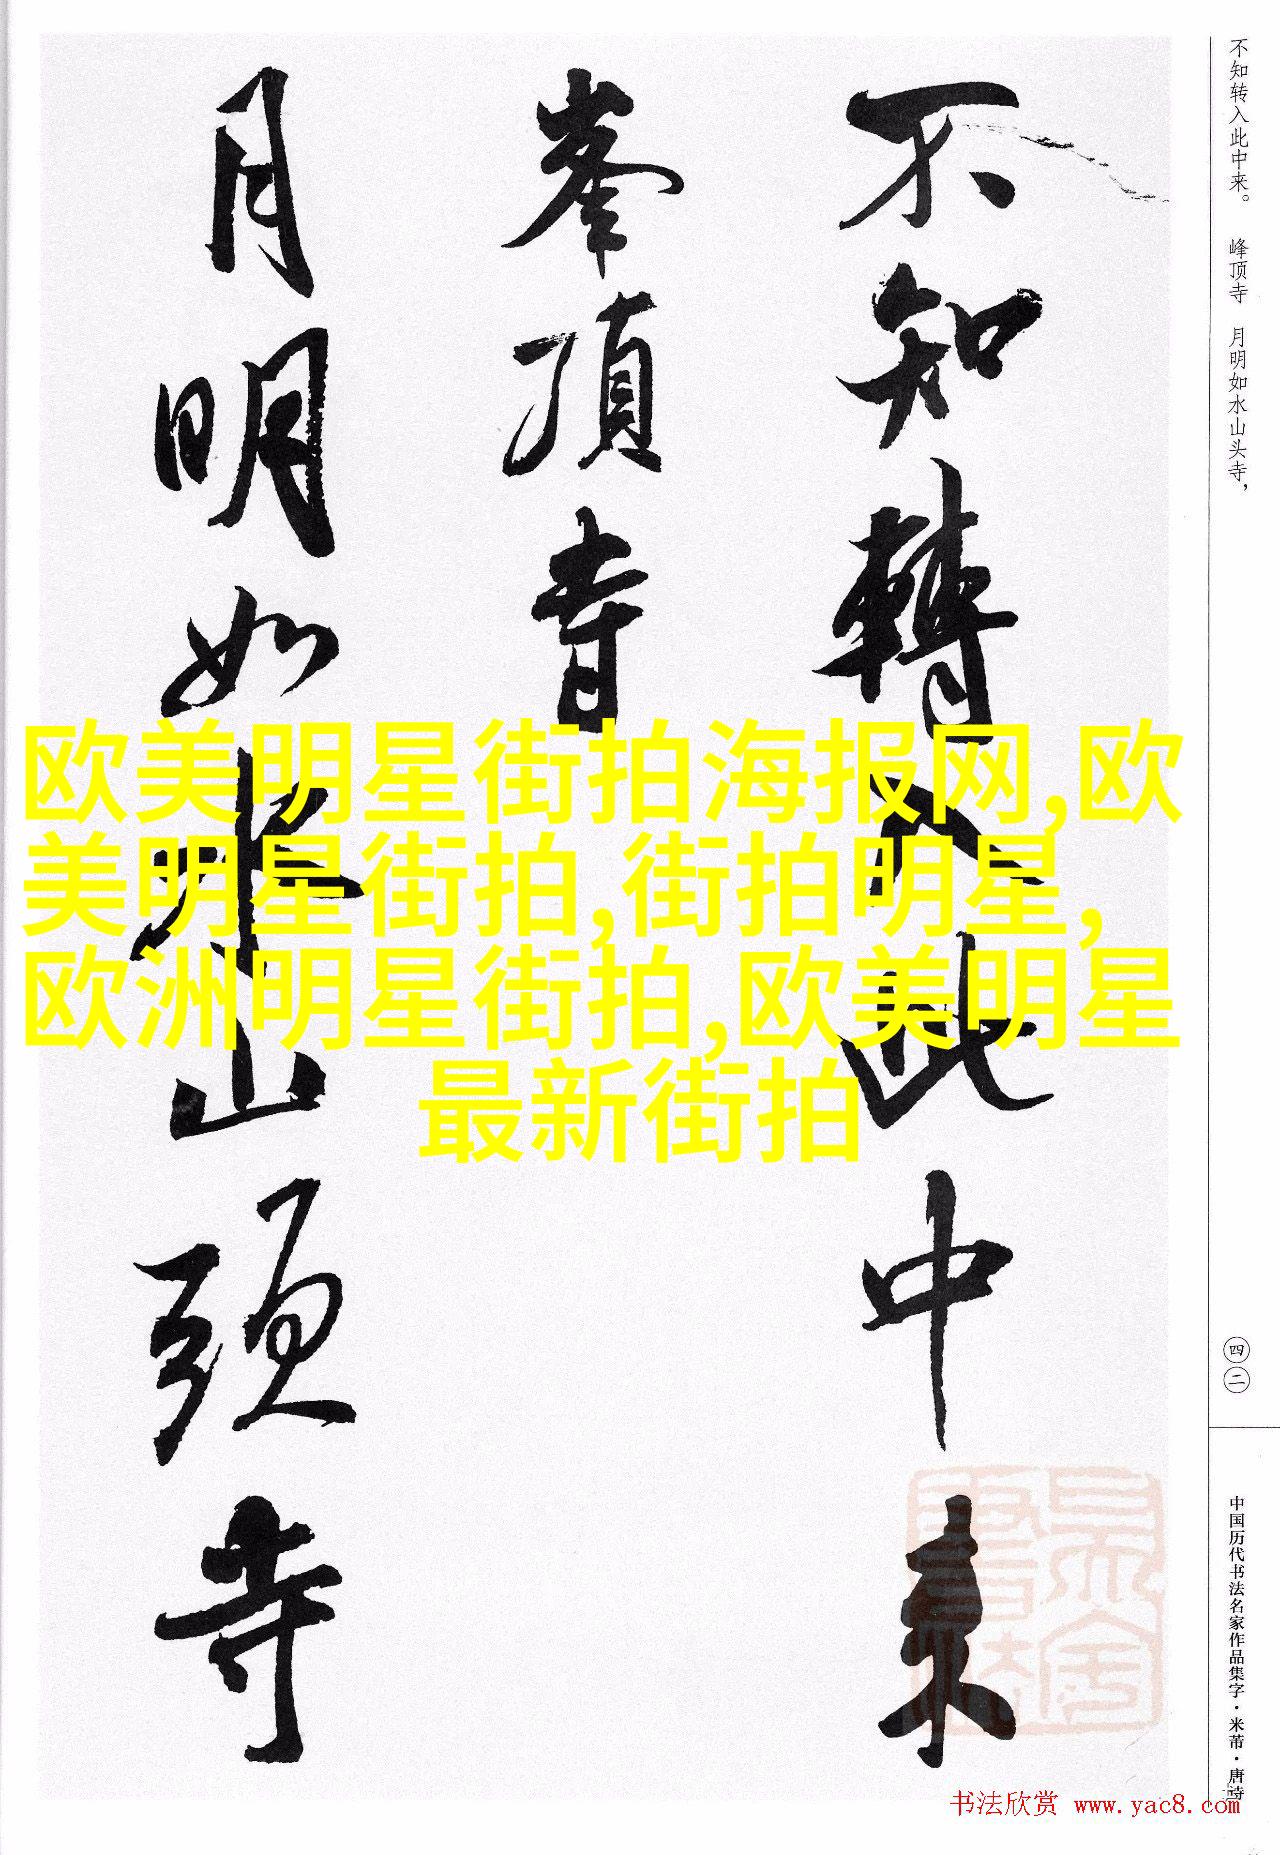 不知轉入此中来
峯頂寺
月明如水山頭寺
不知转入此中来。 峰顶寺 月明如水山头寺，
四二
中国历代书法名家作品集字·米芾·唐诗
欧美明星街拍海报网,欧
美明星街拍,街拍明星,
欧洲明星街拍,欧美明星
最新街拍
书法欣赏 www.yac8.com